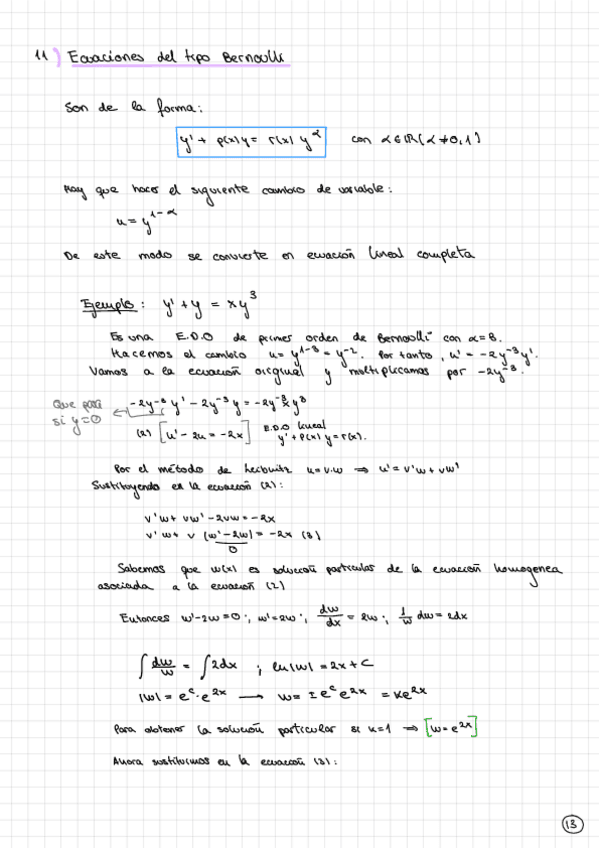 11) Ecuaciones del tipo Bernoulli
Son de la forma:
y' + p(x)y = r(x) y^α con α∈ℝ(α≠0,1)
Hay que hacer el siguiente cambio de variable:
u = y^{1-α}
De este modo se convierte en ecuación lineal completa
Ejemplo: y' + y = xy^3
Es una E.D.O de primer orden de Bernoulli con α=3.
Hacemos el cambio u = y^{1-3} = y^{-2}. Por tanto, u' = -2y^{-3}y'.
Vamos a la ecuación original y multiplicamos por -2y^{-3}.
Que pasa si y=0
-2y^{-3}y' - 2y^{-3}y = -2y^{-3}xy^3
(2) [u' - 2u = -2x] E.D.O lineal
y' + p(x)y = r(x).
Por el método de Leibnitz u = v·w ⇒ u' = v'w + vw'
Sustituyendo en la ecuación (2):
v'w + vw' - 2vw = -2x
v'w + v (w' - 2w) = -2x (3)
0
Sabemos que w(x) es solución particular de la ecuación homogenea
asociada a la ecuación (2)
Entonces w' - 2w = 0; w' = 2w; dw/dx = 2w; 1/w dw = 2dx
∫ dw/w = ∫ 2dx ; ln|w| = 2x + C
|w| = e^c · e^{2x} → w = ± e^c e^{2x} = Ke^{2x}
Para obtener la solución particular si K=1 ⇒ [w = e^{2x}]
Ahora sustituimos en la ecuación (3):
13